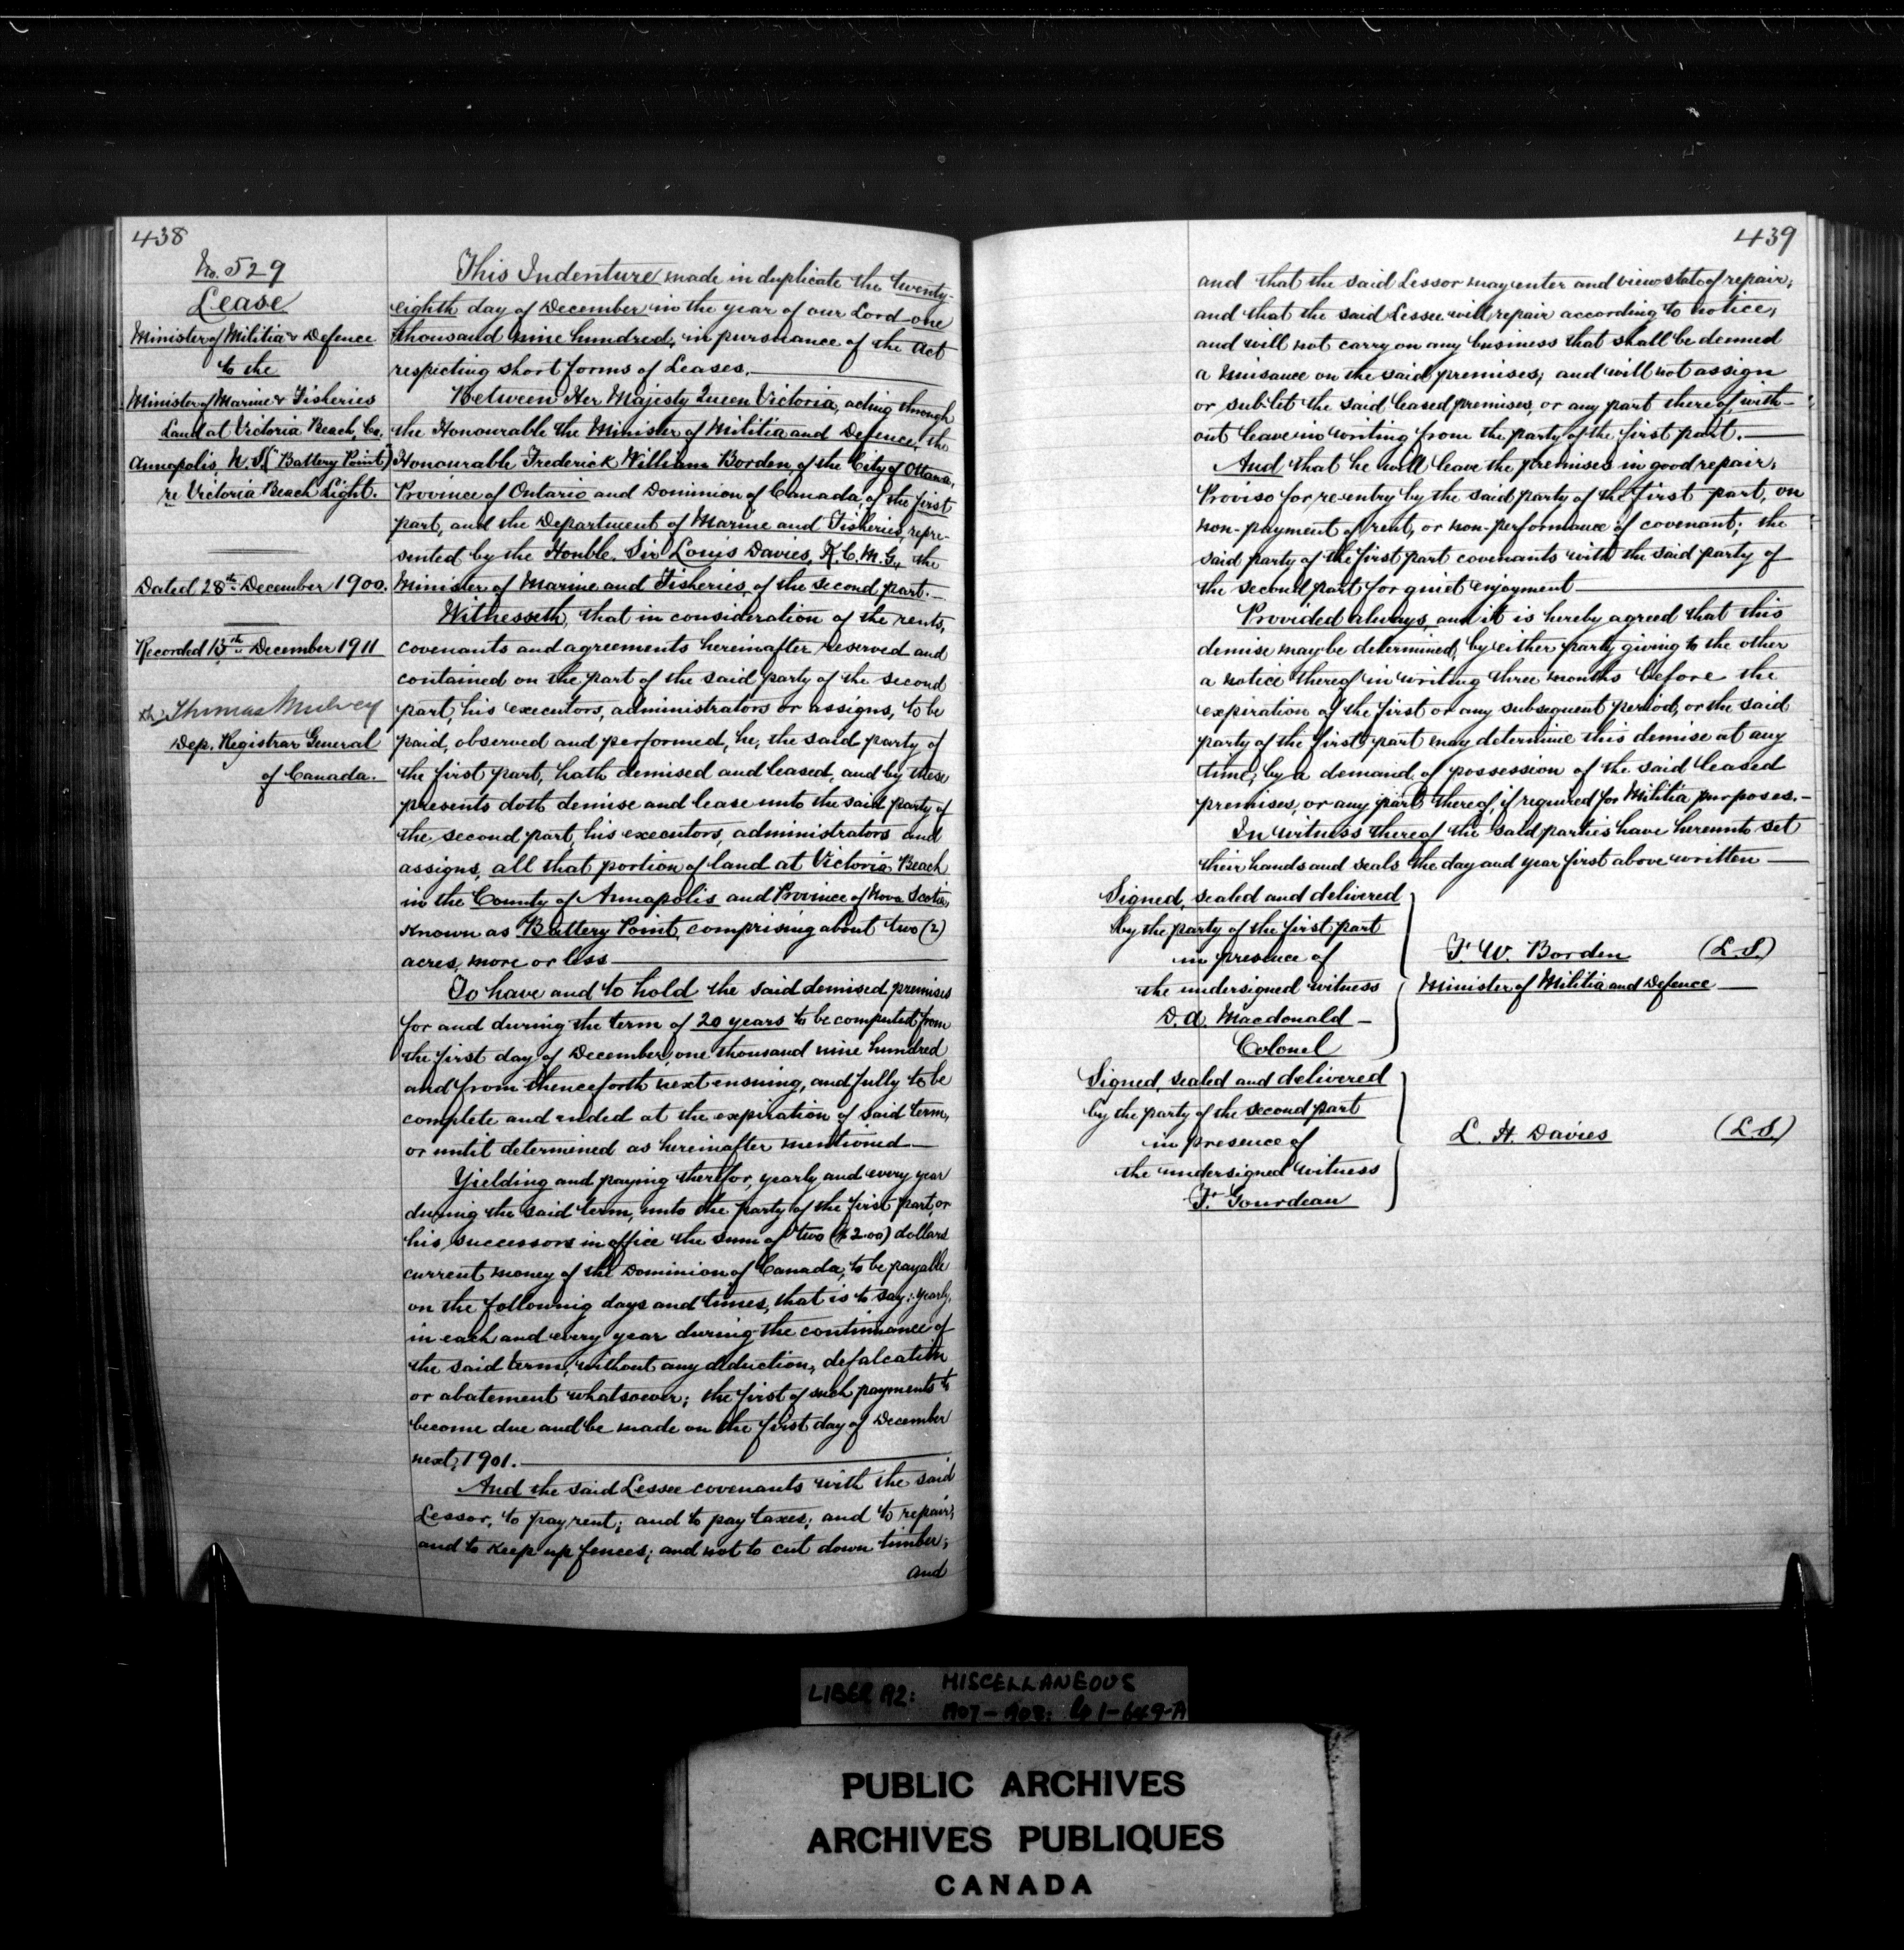 438
No. 529
Lease
Minister of Militia & Defence
to the
Minister of Marine & Fisheries
Land at Victoria Beach, Co.
Annapolis, N.S. ("Battery Point")
re Victoria Beach Light.
Dated 28th December 1900.
Recorded 13th December 1911
Thomas Mulvey
Dep. Registrar General
of Canada.
This Indenture made in duplicate the twenty-
eighth day of December in the year of our Lord one
thousand nine hundred, in pursuance of the Act
respecting short forms of Leases.
Between Her Majesty Queen Victoria, acting through
the Honourable the Minister of Militia and Defence, the
Honourable Frederick William Borden, of the City of Ottawa,
Province of Ontario and Dominion of Canada, of the first
part, and the Department of Marine and Fisheries, repre-
sented by the Honble. Sir Louis Davies, K.C.M.G., the
Minister of Marine and Fisheries, of the second part.
Witnesseth, that in consideration of the rents,
covenants and agreements hereinafter reserved and
contained on the part of the said party of the second
part, his executors, administrators or assigns, to be
paid, observed and performed, he, the said party of
the first part, hath demised and leased, and by these
presents doth demise and lease unto the said party of
the second part, his executors, administrators and
assigns, all that portion of land at Victoria Beach
in the County of Annapolis and Province of Nova Scotia,
known as Battery Point, comprising about two (2)
acres, more or less
To have and to hold the said demised premises
for and during the term of 20 years to be computed from
the first day of December, one thousand nine hundred
and from thenceforth next ensuing, and fully to be
complete and ended at the expiration of said term,
or until determined as hereinafter mentioned
Yielding and paying therefor, yearly and every year
during the said term, unto the party of the first part, or
his successors in office the sum of two ($2.00) dollars
current money of the Dominion of Canada, to be payable
on the following days and times, that is to say: yearly,
in each and every year during the continuance of
the said term, without any deduction, defalcation
or abatement whatsoever; the first of such payments to
become due and be made on the first day of December
next, 1901.
And the said Lessee covenants with the said
Lessor, to pay rent; and to pay taxes; and to repair;
and to keep up fences; and not to cut down timber;
and
439
and that the said Lessor may enter and view state of repair;
and that the said Lessee will repair according to notice;
and will not carry on any business that shall be deemed
a nuisance on the said premises; and will not assign
or sub-let the said leased premises, or any part thereof, with-
out leave in writing from the party of the first part.
And that he will leave the premises in good repair;
Proviso for re-entry by the said party of the first part, on
non-payment of rent, or non-performance of covenant; the
said party of the first part covenants with the said party of
the second part for quiet enjoyment
Provided always, and it is hereby agreed that this
demise may be determined, by either party giving to the other
a notice thereof in writing three months before the
expiration of the first or any subsequent period, or the said
party of the first part may determine this demise at any
time, by a demand of possession of the said leased
premises, or any part thereof, if required for Militia purposes.
In witness thereof the said parties have hereunto set
their hands and seals the day and year first above written
Signed, sealed and delivered
by the party of the first part
in presence of
the undersigned witness
D. A. Macdonald
Colonel
F. W. Borden (L.S.)
Minister of Militia and Defence
Signed, sealed and delivered
by the party of the second part
in presence of
the undersigned witness
F. Gourdeau
L. H. Davies (L.S.)
LIBER A2: MISCELLANEOUS
PUBLIC ARCHIVES
ARCHIVES PUBLIQUES
CANADA